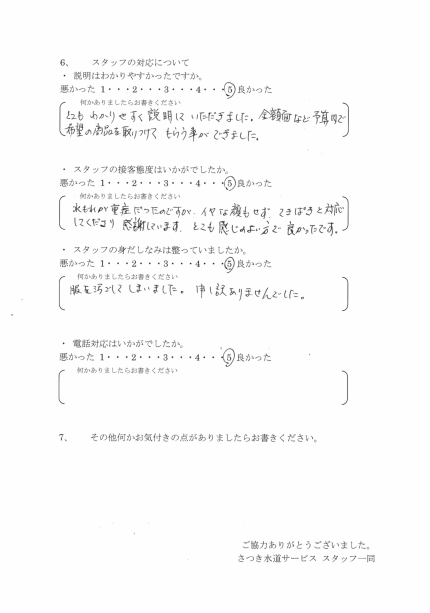 6、 スタッフの対応について
・ 説明はわかりやすかったですか。
悪かった 1・・・2・・・3・・・4・・・5良かった
何かありましたらお書きください
とてもわかりやすく説明していただきました。金額面など予算内で
希望の商品を取りつけてもらう事ができました。
・ スタッフの接客態度はいかがでしたか。
悪かった 1・・・2・・・3・・・4・・・5良かった
何かありましたらお書きください
水もれが重度だったのですが、イヤな顔もせず、てきぱきと対応
してくださり感謝しています。とても感じのよい方で良かったです。
・ スタッフの身だしなみは整っていましたか。
悪かった 1・・・2・・・3・・・4・・・5良かった
何かありましたらお書きください
服を汚してしまいました。申し訳ありませんでした。
・ 電話対応はいかがでしたか。
悪かった 1・・・2・・・3・・・4・・・5良かった
何かありましたらお書きください
7、 その他何かお気付きの点がありましたらお書きください。
ご協力ありがとうございました。
さつき水道サービス スタッフ一同